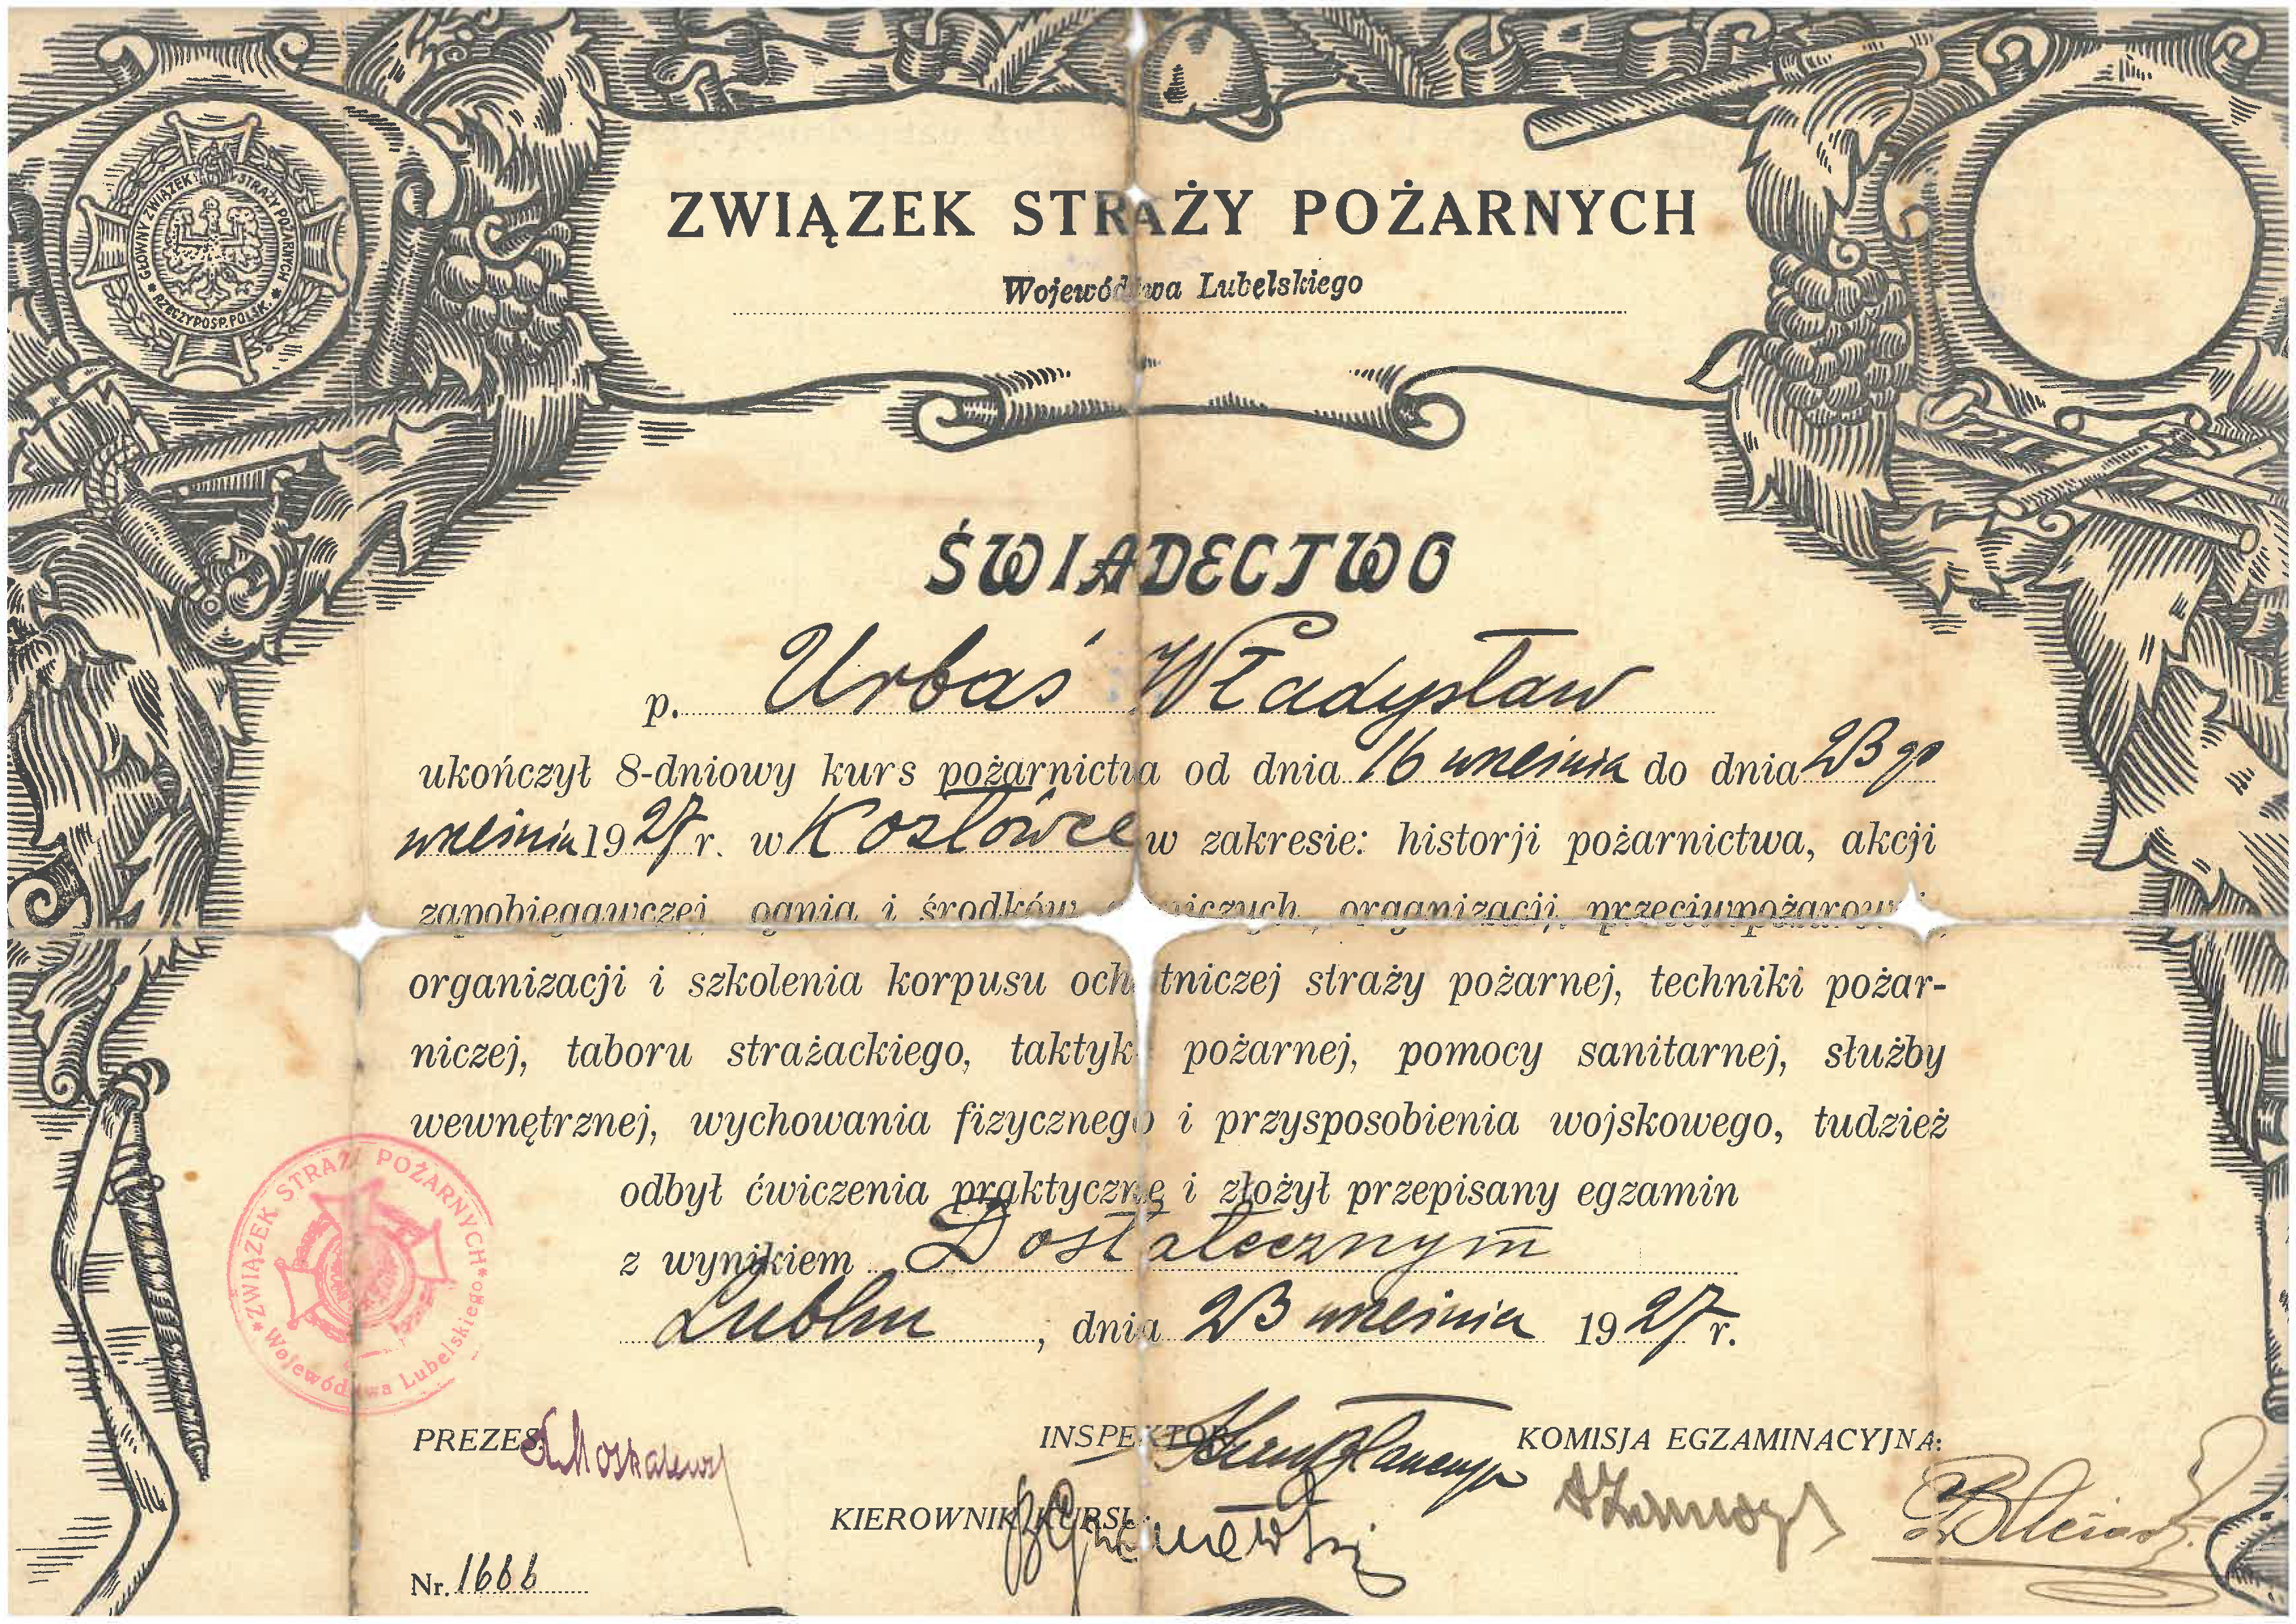 GŁÓWNY ZWIĄZEK STRAŻY POŻARNYCH * RZECZYPOSP. POLSK. *
ZWIĄZEK STRAŻY POŻARNYCH
Województwa Lubelskiego
ŚWIADECTWO
p. Urbaś Władysław
ukończył 8-dniowy kurs pożarnictwa od dnia 16 września do dnia 23 go
września 1927 r. w Kozłówce w zakresie: historji pożarnictwa, akcji
zapobiegawczej, ognia i środków gaśniczych, organizacji przeciwpożarowej,
organizacji i szkolenia korpusu ochotniczej straży pożarnej, techniki pożar-
niczej, taboru strażackiego, taktyki pożarnej, pomocy sanitarnej, służby
wewnętrznej, wychowania fizycznego i przysposobienia wojskowego, tudzież
odbył ćwiczenia praktyczne i złożył przepisany egzamin
z wynikiem Dostatecznym
Lublin, dnia 23 września 1927 r.
*ZWIĄZEK STRAŻY POŻARNYCH* Województwa Lubelskiego
PREZES: INSPEKTOR: KOMISJA EGZAMINACYJNA:
KIEROWNIK KURSU:
Nr. 1666